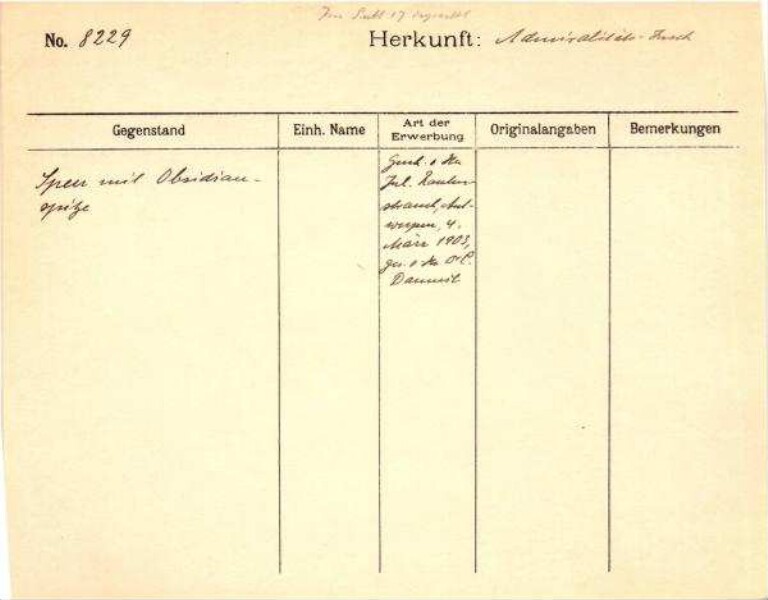 No. 8229
Herkunft: Admiralitäts-Insch
Gegenstand
Einh. Name
Art der
Erwerbung
Originalangaben
Bemerkungen
Speer mit Obsidian-
spitze
Gesch. v. Hn
Jul. Rauten
strauch, Ant-
werpen, 4.
März 1903,
ges. v. Hn